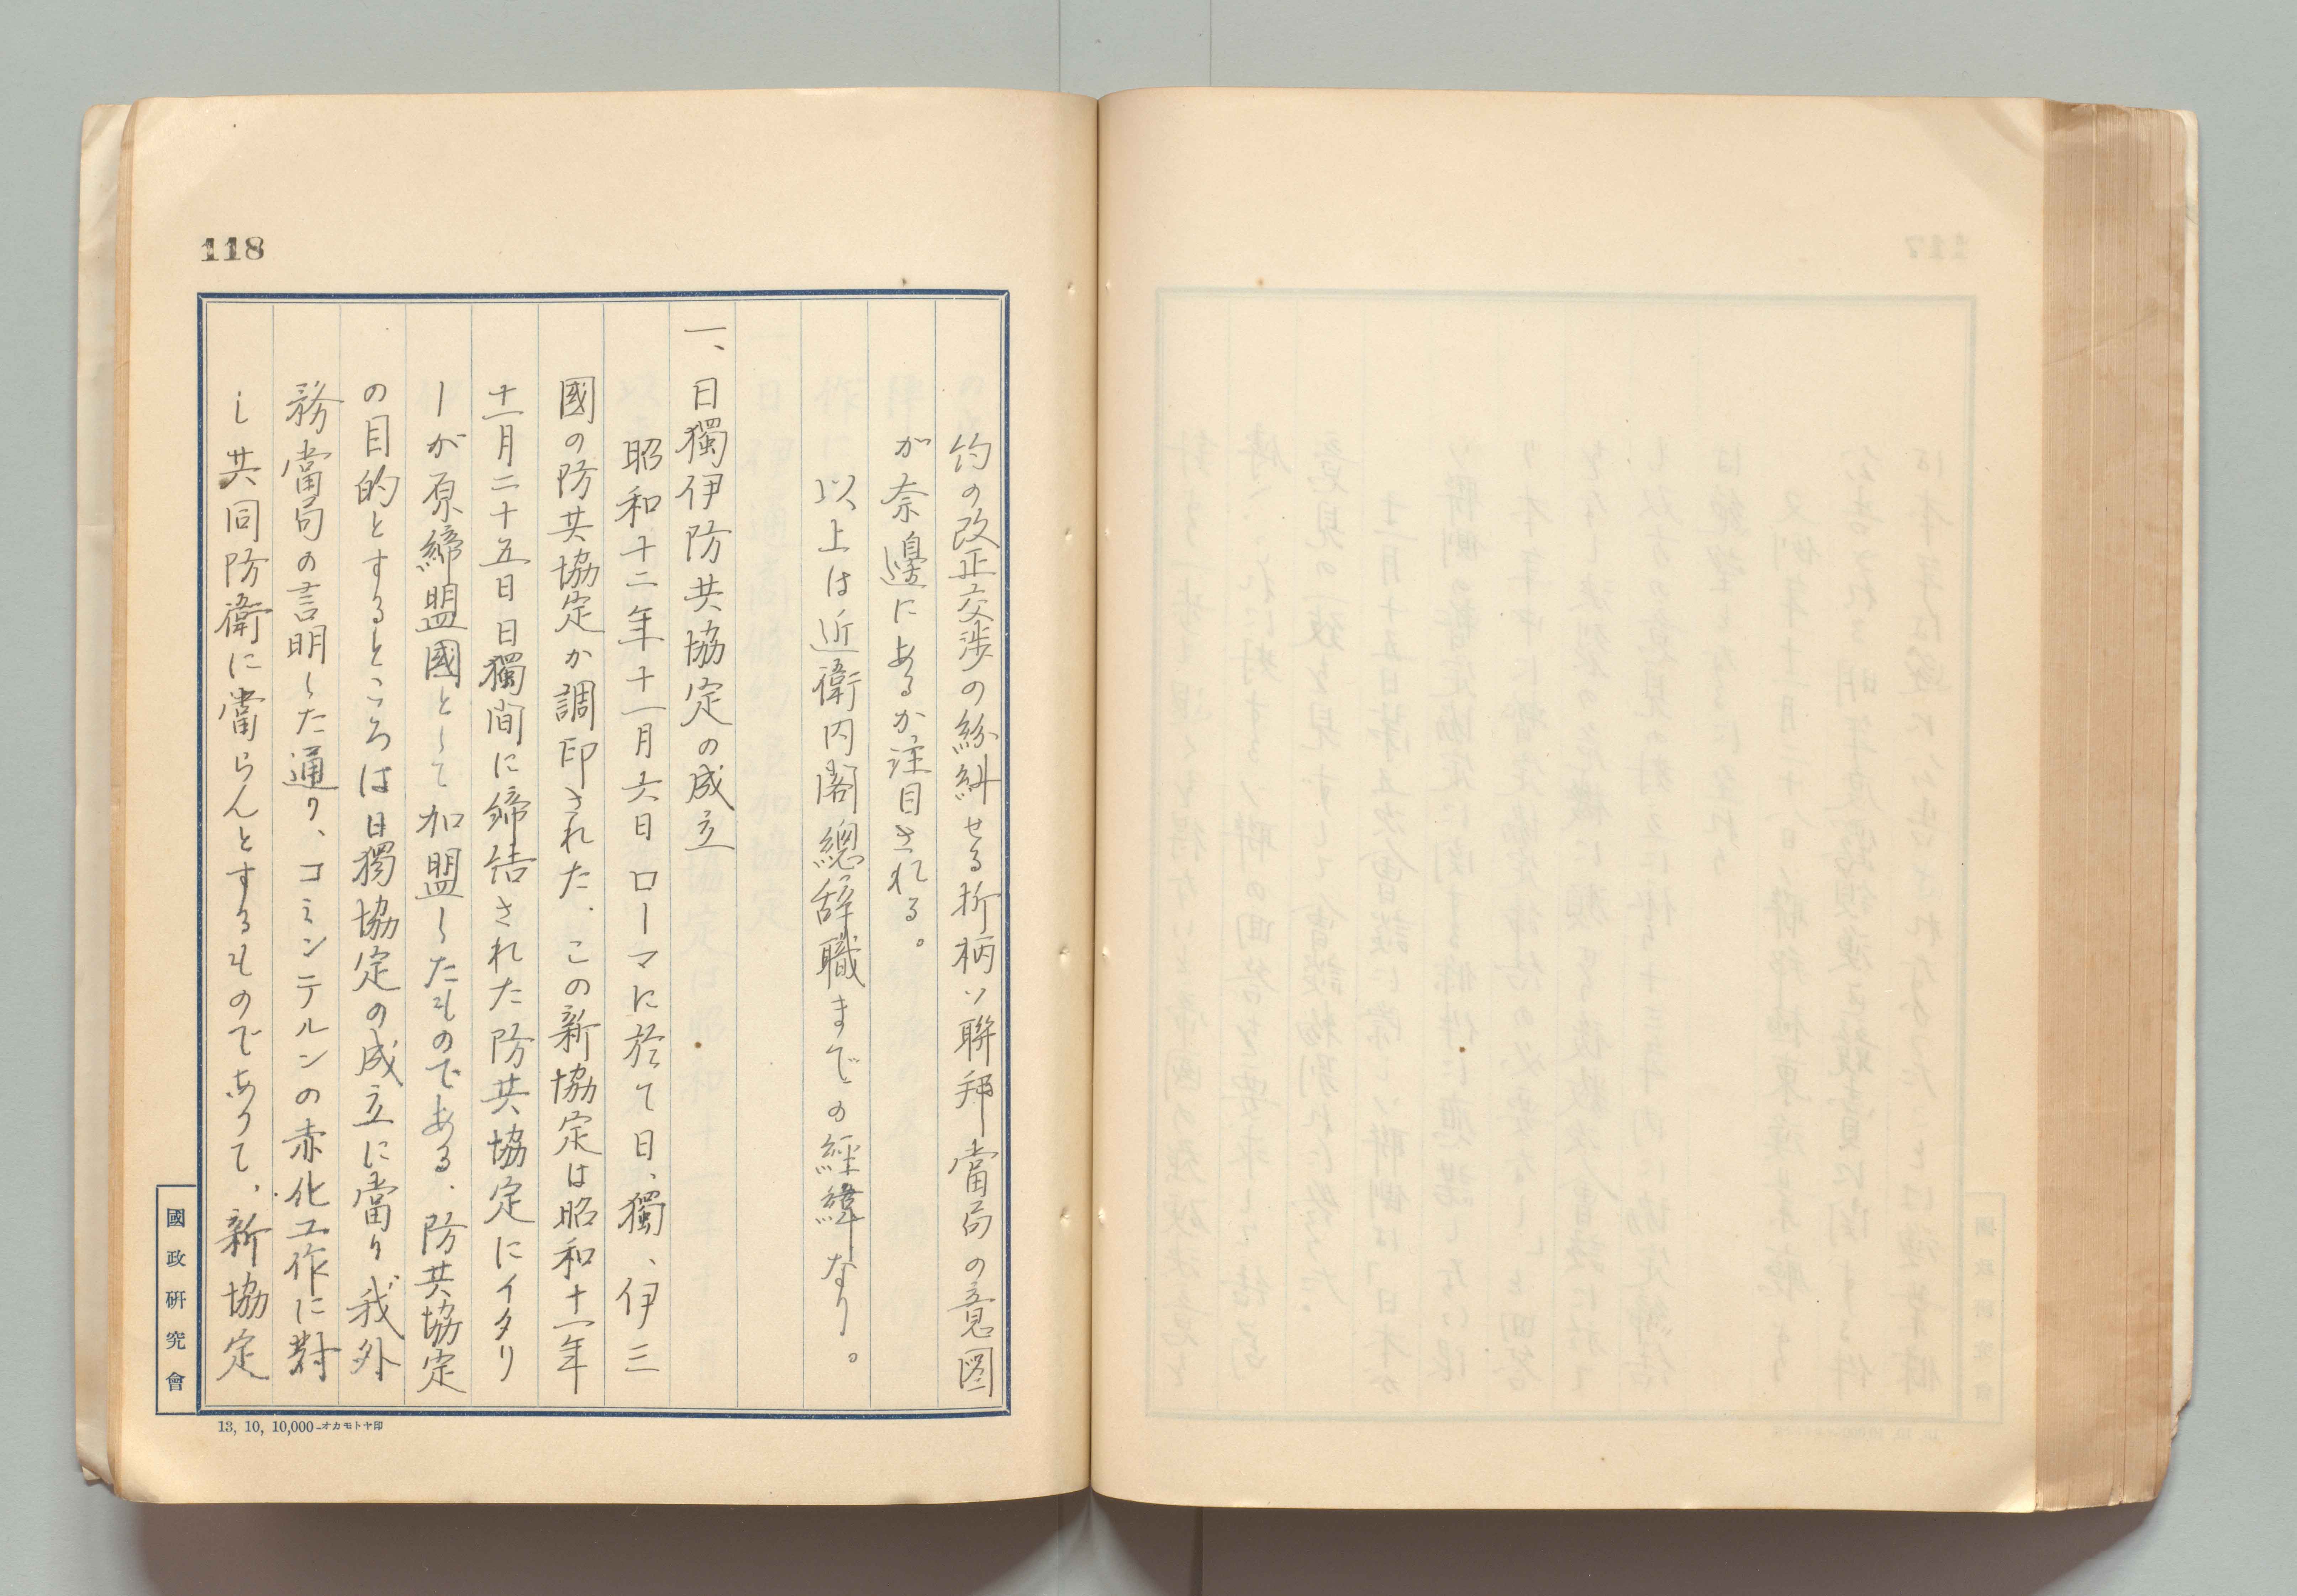 118
約の改正交渉の紛糾せる折柄ソ聯邦當局の意図
が奈邊にあるか注目される。
以上は近衛内閣總辞職までの経緯なり。
一、日獨伊防共協定の成立
昭和十二年十一月六日ローマに於て日、獨、伊三
國の防共協定か調印された．この新協定は昭和十一年
十一月二十五日日獨間に締結された防共協定にイタリ
ーが原締盟國として加盟したものである．防共協定
の目的とするところは日獨協定の成立に當り我外
務當局の言明した通り、コミンテルンの赤化工作に對
し共同防衛に當らんとするものでありて、新協定
國政硏究會
13, 10, 10,000-オカモトヤ印